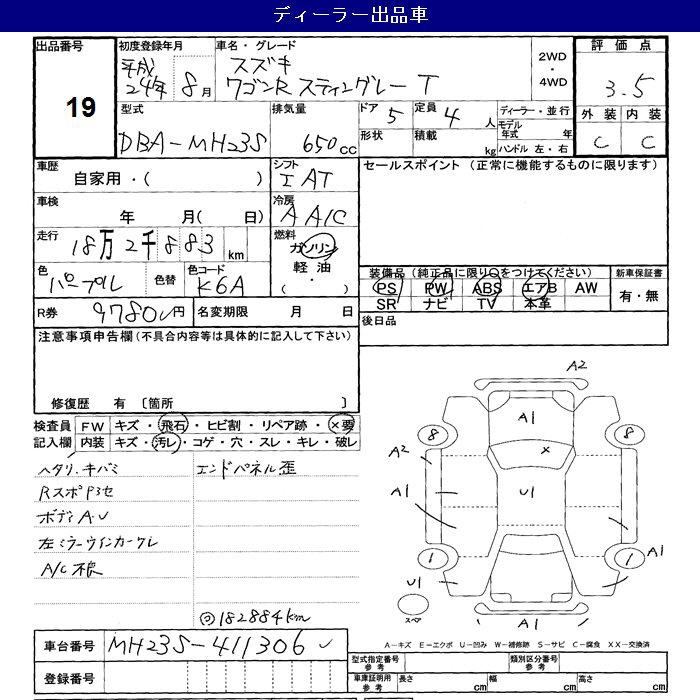 ディーラー出品車
出品番号
19
初度登録年月
平成
24年 8月
車名・グレード
スズキ
ワゴンR スティングレー T
2WD
・
4WD
評価点
3.5
外装 内装
C C
型式
DBA-MH23S
排気量
650cc
ドア 5
定員 4人
形状
積載 kg
ディーラー・並行
モデル
年式 年
ハンドル 左・右
車歴
自家用・( )
シフト
IAT
セールスポイント (正常に機能するものに限ります)
車検
年 月( 日)
冷房
AAC
走行
18万2千883km
燃料
ガソリン
軽油
・
( )
色
パープル
色替
色コード
K6A
装備品 (純正品に限り○をつけてください)
PS PW ABS エアB AW
SR ナビ TV 本革
新車保証書
有・無
R券 9780円
名変期限 月 日
後日品
注意事項申告欄(不具合内容等は具体的に記入して下さい)
修復歴 有 〔箇所 〕
検査員 FW キズ・飛石・ヒビ割・リペア跡・×要
記入欄 内装 キズ・汚レ・コゲ・穴・スレ・キレ・破レ
ヘタリ、キバミ
エンドパネル歪
RスポPヨセ
ボディA・U
左ミラーウインカーワレ
A/C不良
182884km
車台番号 MH23S-411306
登録番号
A2
A1
8
8
A2
A1
U1
1
1
A1
U1
スペア
A1
A-キズ E-エクボ U-凹み W-補修跡 S-サビ C-腐食 XX-交換済
型式指定番号
参考
類別区分番号
参考
車庫証明用
参考
長さ cm
幅 cm
高さ cm